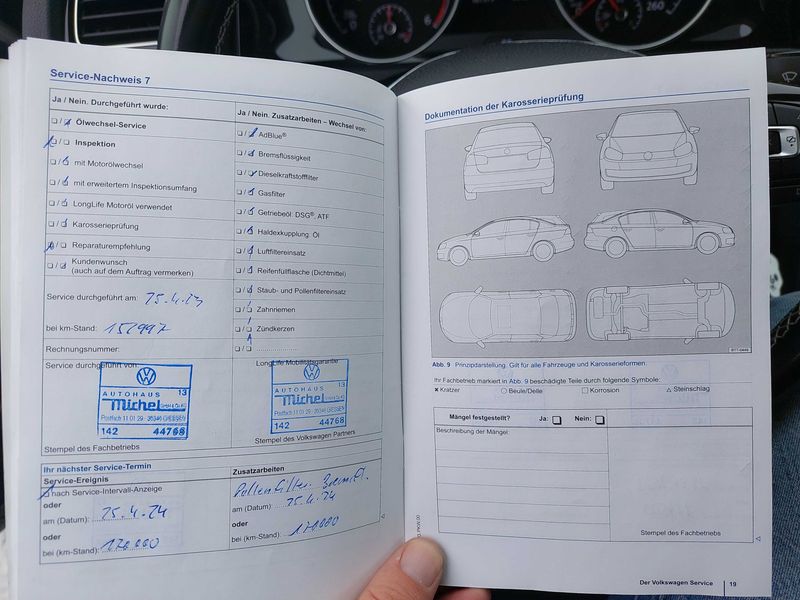 6
260
Service-Nachweis 7
Ja / Nein. Durchgeführt wurde:
Ölwechsel-Service
Inspektion
mit Motorölwechsel
mit erweitertem Inspektionsumfang
LongLife Motoröl verwendet
Karosserieprüfung
Reparaturempfehlung
Kundenwunsch
(auch auf dem Auftrag vermerken)
Service durchgeführt am: 25.4.23
bei km-Stand: 152997
Rechnungsnummer:
Service durchgeführt von:
AUTOHAUS 13
Michel GMBH & CO. KG
Postfach 11 01 29 · 35346 GIESSEN
142 44768
Stempel des Fachbetriebs
Ja / Nein. Zusatzarbeiten – Wechsel von:
AdBlue®
Bremsflüssigkeit
Dieselkraftstofffilter
Gasfilter
Getriebeöl: DSG®, ATF
Haldexkupplung: Öl
Luftfiltereinsatz
Reifenfüllflasche (Dichtmittel)
Staub- und Pollenfiltereinsatz
Zahnriemen
Zündkerzen
LongLife Mobilitätsgarantie
AUTOHAUS 13
Michel GMBH & CO. KG
Postfach 11 01 29 · 35346 GIESSEN
142 44768
Stempel des Volkswagen Partners
Ihr nächster Service-Termin
Service-Ereignis
nach Service-Intervall-Anzeige
oder
am (Datum): 25.4.24
oder
bei (km-Stand): 170.000
Zusatzarbeiten
Pollenfilter Bremsfl.
am (Datum): 25.4.24
oder
bei (km-Stand): 170000
Dokumentation der Karosserieprüfung
Abb. 9 Prinzipdarstellung. Gilt für alle Fahrzeuge und Karosserieformen.
Ihr Fachbetrieb markiert in Abb. 9 beschädigte Teile durch folgende Symbole:
Kratzer
Beule/Delle
Korrosion
Steinschlag
Mängel festgestellt? Ja: Nein:
Beschreibung der Mängel:
Stempel des Fachbetriebs
Der Volkswagen Service 19